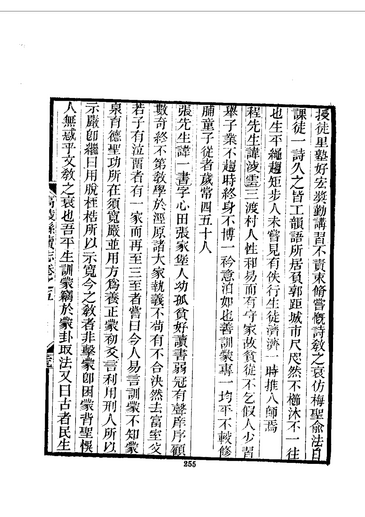 授徒里塾好宏奬勤講習不責束脩嘗慨詩敎之衰仿梅聖俞法日
課徒一詩久之皆工韻語所居負郭距城市尺咫然不櫛沐不一往
也生平繩趨矩步人未嘗見有佚行生徒濟濟一時推人師焉
程先生諱凌雲三渡村人性和易而有守家故貧從不乞假人少習
舉子業不趨時終身不博一衿意泊如也善訓蒙專一均平不較修
脯童子從者歲常四五十人
張先生諱一書字心田張家堡人幼孤貧好讀書弱冠有聲庠序顧
數奇終不第敎學於涇原諸大家執義不苟有不合決然去富室
若子有泣留者有一家而再至三至者嘗曰今人易言訓蒙不知蒙
泉育德聖功所在須寬嚴並用方爲養正蒙初爻言利用刑人所以
示嚴卽繼曰用脫桎梏所以示寬今之敎者非擊蒙卽困蒙背聖
人無惑乎文敎之衰也吾平生訓蒙竊於蒙卦取法又曰古者民生
高陵縣續志卷之五
255